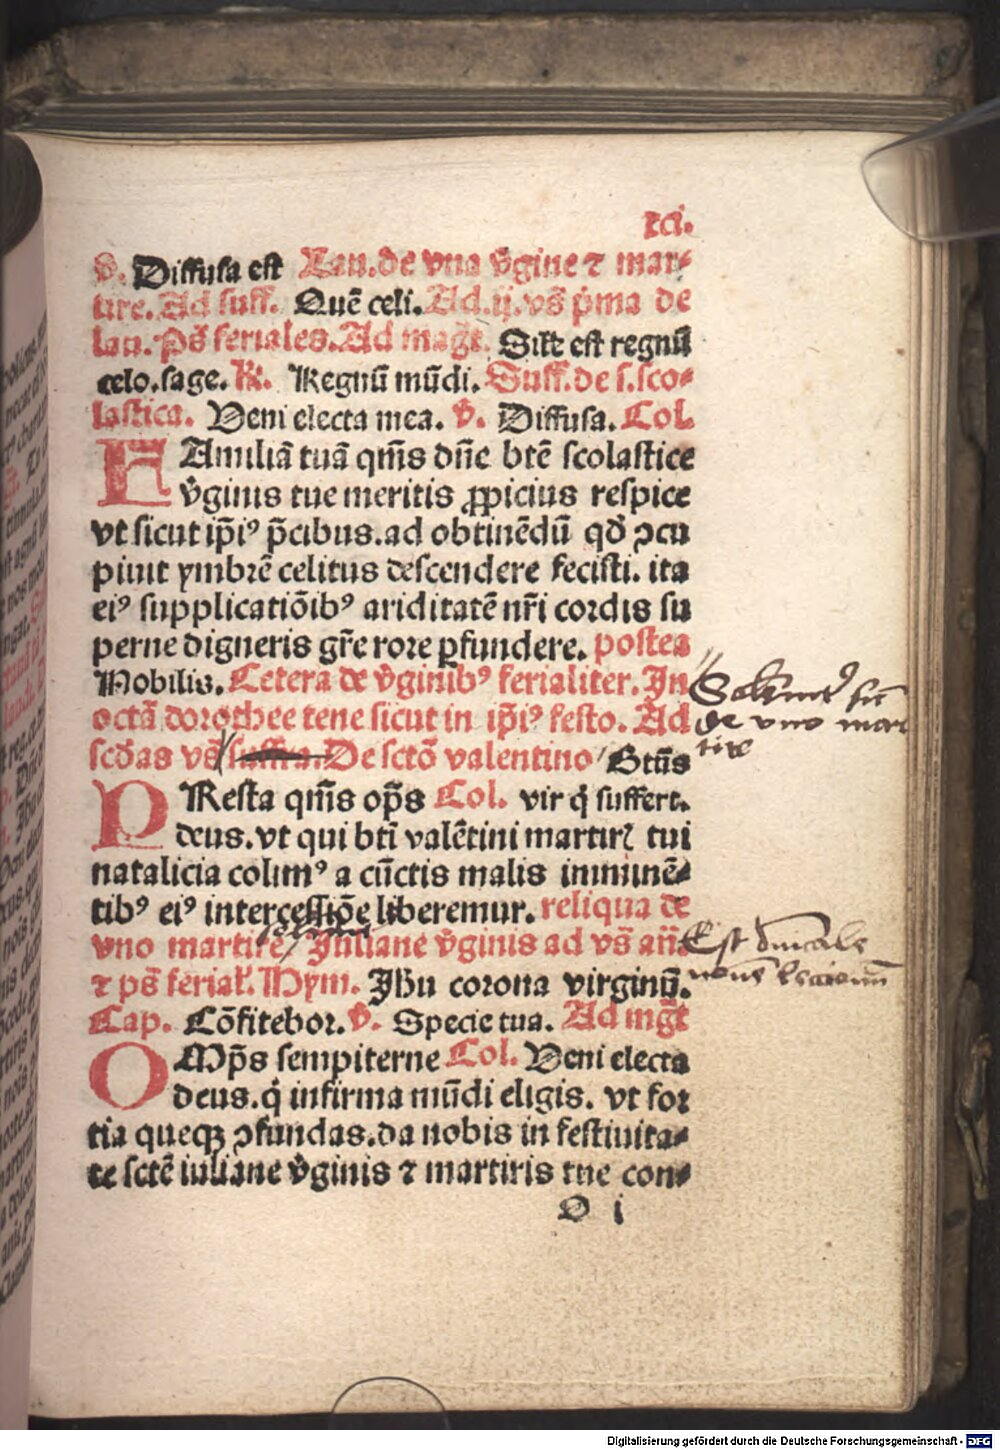 xci.
v̄. Diffusa est Lau. de vna v̄gine ⁊ mar⸗
tire. Ad suff. Quē celi. Ad .ij. vs̄ p̄ma de
lau. Ps̄ feriales. Ad magt̄. Sile est regnū
celo. sage. R. Regnū mūdi. Suff. de s. sco⸗
lastica. Veni electa mea. v̄. Diffusa. Col.
FAmiliā tuā qm̄s dn̄e btē scolastice
v̄ginis tue meritis ꝓpicius respice
vt sicut ip̄iꝰ p̄cibus. ad obtinēdū qd̄ ↄcu
piuit ymbrē celitus descendere fecisti. ita
eiꝰ supplicatiōibꝰ ariditatē nr̄i cordis su
perne digneris gr̄e rore ꝑfundere. postea
Nobilis. Cetera de v̄ginibꝰ ferialiter. In
octā dorothee tene sicut in ip̄iꝰ festo. Ad
scd̄as vs̄ suffra. De sctō valentino Btūs
PResta qm̄s op̄s Col. vir q̄ suffert.
deus. vt qui btī valētini martirꝭ tui
natalicia colimꝰ a cūctis malis imminē⸗
tibꝰ eiꝰ intercessiōe liberemur. reliqua de
vno martire Juliane v̄ginis ad vs̄ an̄a
⁊ ps̄ ferial'. Hym. Jhu corona virginū.
Cap. Cōfitebor. v̄. Specie tua. Ad mgt̄
OMp̄s sempiterne Col. Veni electa
deus. q̄ infirma mūdi eligis. vt for
tia queqꝫ ↄfundas. da nobis in festiuita⸗
te sctē iuliane v̄ginis ⁊ martiris tue con⸗
D i
de vno mar
tire
Est
Digitalisierung gefördert durch die Deutsche Forschungsgemeinschaft - DFG